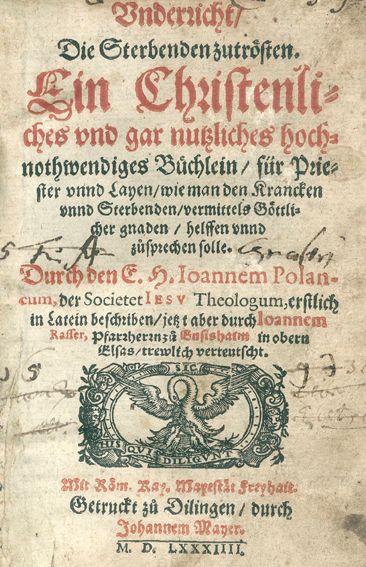 Vnderricht/
Die Sterbenden zutrösten.
Ein Christenli-
ches vnd gar nutzliches hoch-
nothwendiges Büchlein / für Prie-
ster vnnd Layen / wie man den Krancken
vnnd Sterbenden / vermittels Göttli-
cher gnaden / helffen vnnd
zůsprechen solle.
Durch den E. H. Ioannem Polan-
cum, der Societet IESV Theologum, erstlich
in Latein beschriben / jetzt aber durch Ioannem
Rasser, Pfarrherrn zů Ensishaim in obern
Elsas / trewlich verteutscht.
SIC
HIS QVI DILIGVNT
Mit Röm. Kay. Mayestät Freyhait.
Getruckt zů Dilingen / durch
Johannem Mayer.
M. D. LXXXIIII.